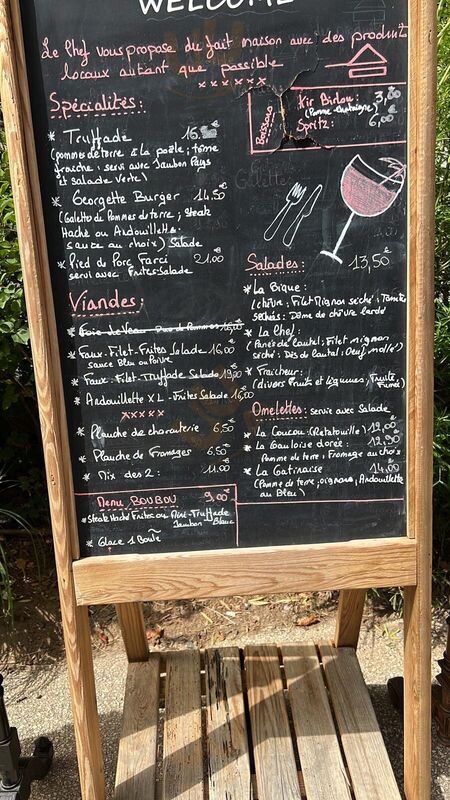 WELCOME
Le Chef vous propose du fait maison avec des produits
locaux autant que possible
xxxxxx
Spécialités:
* Truffade 16.
(pommes de terre à la poële; tomme
fraiche: servi avec Jambon Pays
et salade verte)
* Georgette Burger 14.50€
(Galette de Pommes de terre; Steak
Haché ou Andouillette
sauce au choix) Salade
* Pied de Porc Farci 21.00€
servi avec Frites-Salade
Viandes:
* Foie de Veau
* Faux-Filet-Frites Salade 16,00€
sauce Bleu ou Poivre
* Faux-Filet-Truffade Salade 19,00€
* Andouillette XL-Frites Salade 16,00€
xxxxx
* Planche de charcuterie 6,50€
* Planche de Fromages 6,50€
* Mix des 2: 11.00€
Menu BOUBOU 9,00€
* Steak Haché Frites ou Mini-Truffade
Jambon Blanc
* Glace 1 Boule
Boissons
Kir Birlou: 3,00
(Pomme chataigne)
Spritz: 6,00€
Salades: 13,50€
* La Bique:
(chèvre; Filet Mignon séché; Tomates
séchés; Dôme de chèvre lardé
* La Chef:
(Panés de Cantal; Filet mignon
séché; Dés de Cantal; Oeuf mollet)
* Fraicheur:
(divers Fruits et Légumes; Truite
Fumée)
Omelettes: servie avec Salade
* La Coucou (Ratatouille)
* La Gauloise dorée: 12.90
Pomme de terre; Fromage au choix
* La Gatinaise 14.00
(Pomme de terre, oignons, Andouillette
au Bleu)